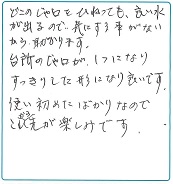 どこのじゃ口をひねっても、良い水
が出るので、気にする事がない
から助かります。
台所のじゃ口が、1つになり
すっきりした形になり良いです。
使い初めたばかりなので
これから先が楽しみです。